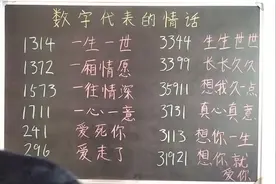 数字代表的情话
1314 一生一世 3344 生生世世
1372 一厢情愿 3399 长长久久
1573 一往情深 35911 想我久一点
1711 一心一意 3731 真心真意
241 爱死你 3113 想你一生
296 爱走了 31921 想你就爱你